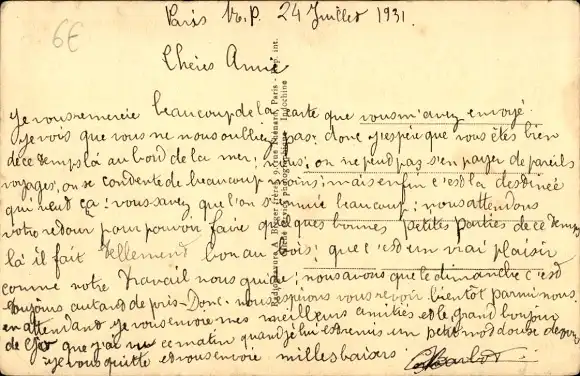 Paris V.P. 24 Juillet 1931.
6€
Chères Amie
Je vous remercie beaucoup de la carte que vous m'avez envoyé.
je vois que vous ne nous oubliez pas; donc j'espère que vous êtes bien
de ce temps là au bord de la mer; nous; on ne peud pas s'en payer de pareils
voyages, on se condente de beaucoup moins; mais enfin c'est la desdineé
qui veud ça! vous savez que l'on s'ennuie beaucoup; nous attendons
votre redour pour pouvoir faire quelques bonnes petites parties de ce temps
là il fait tellement bon au bois; que c'est un vrai plaisir
comme notre travail nous guide; nous avons que le dimanche c'est
toujours autand de pris. Donc nous espérons vous revoir bientôt parmi nous
en attendand je vous envoie mes meilleurs amitiés et le grand bonjour
de que j'ai vu ce matin quand je lui est remis un petit mod douse de
je vous quitte et vous envoie milles baisers.
Photogravure A. Breger frères, 9, rue Thénard, Paris - Rép. int.
Indochine